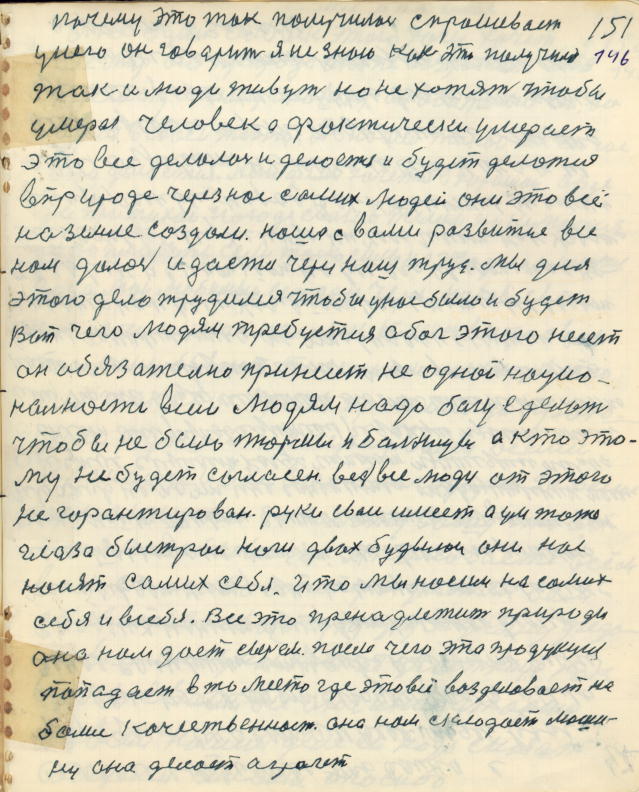 почему это так получилос спрошевает 151
унего он говарит я не знаю как это получило 146
так и люди живут но не хотят чтобы
умерал человек а фактически умерает
это все делалос и делаетя и будет делатся
вприроде через нас самих людей они это всё
на земле создали. наше с вами развитие все
нам далос и дается через наш труд. Мы для
этого дело трудимся чтобы у нас было и будет
Вот чего людям требуется а бог этого несет
он обязателно принесет не одной нацио-
налности всем людям надо богу сделат
чтобы не было тюрмы и балницы а кто это-
му не будет согласен. вед все люди от этого
не гарантирован. руки свои имеет а ум тоже
глаза быстраи ноги двох будылои они нас
носят самих себя. что мы носим на самих
себя и всебя. Все это пренадлежит природи
она нам дает сырем. после чего эта продукция
попадает в то место где этовсё возделовает на
бами качественност. она нам складает маши-
ну она делает агрегат